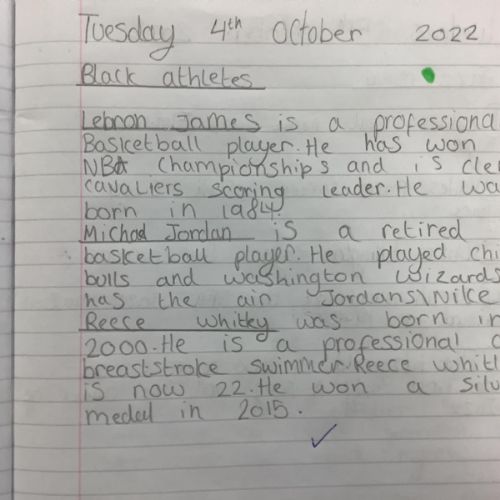 Tuesday 4th October 2022
Black athletes
Lebron James is a professiona
Basketball player. He has won
NBA Championships and is Cle
cavaliers scoring leader. He wa
born in 1984.
Michael Jordan is a retired
basketball player. He played chi
bulls and washington wizards
has the air Jordans\Nike
Reece whitley was born in
2000. He is a professional
breaststroke swimmer. Reece whitl
is now 22. He won a silv
medal in 2015.